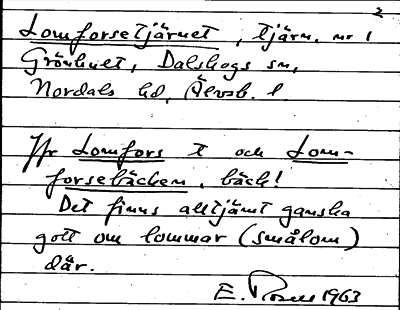 2
Lomforsetjärnet, tjärn. nr 1
Grönhult, Dalskogs sn,
Nordals hd, Älvsb. l.
Jfr Lomfors t och Lom-
forsebäcken, bäck!
Det finns alltjämt ganska
gott om lommar (smålom)
där.
E. Rosell 1963